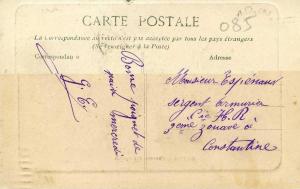 085
CARTE POSTALE
La Correspondance au recto n'est pas acceptée par tous les pays étrangers
(Se renseigner à la Poste)
Correspondance
Adresse
Bonne poignet de
main
G. Ex
Monsieur Espénaux
sergent armurier
C H R
3ème zouave à
Constantine